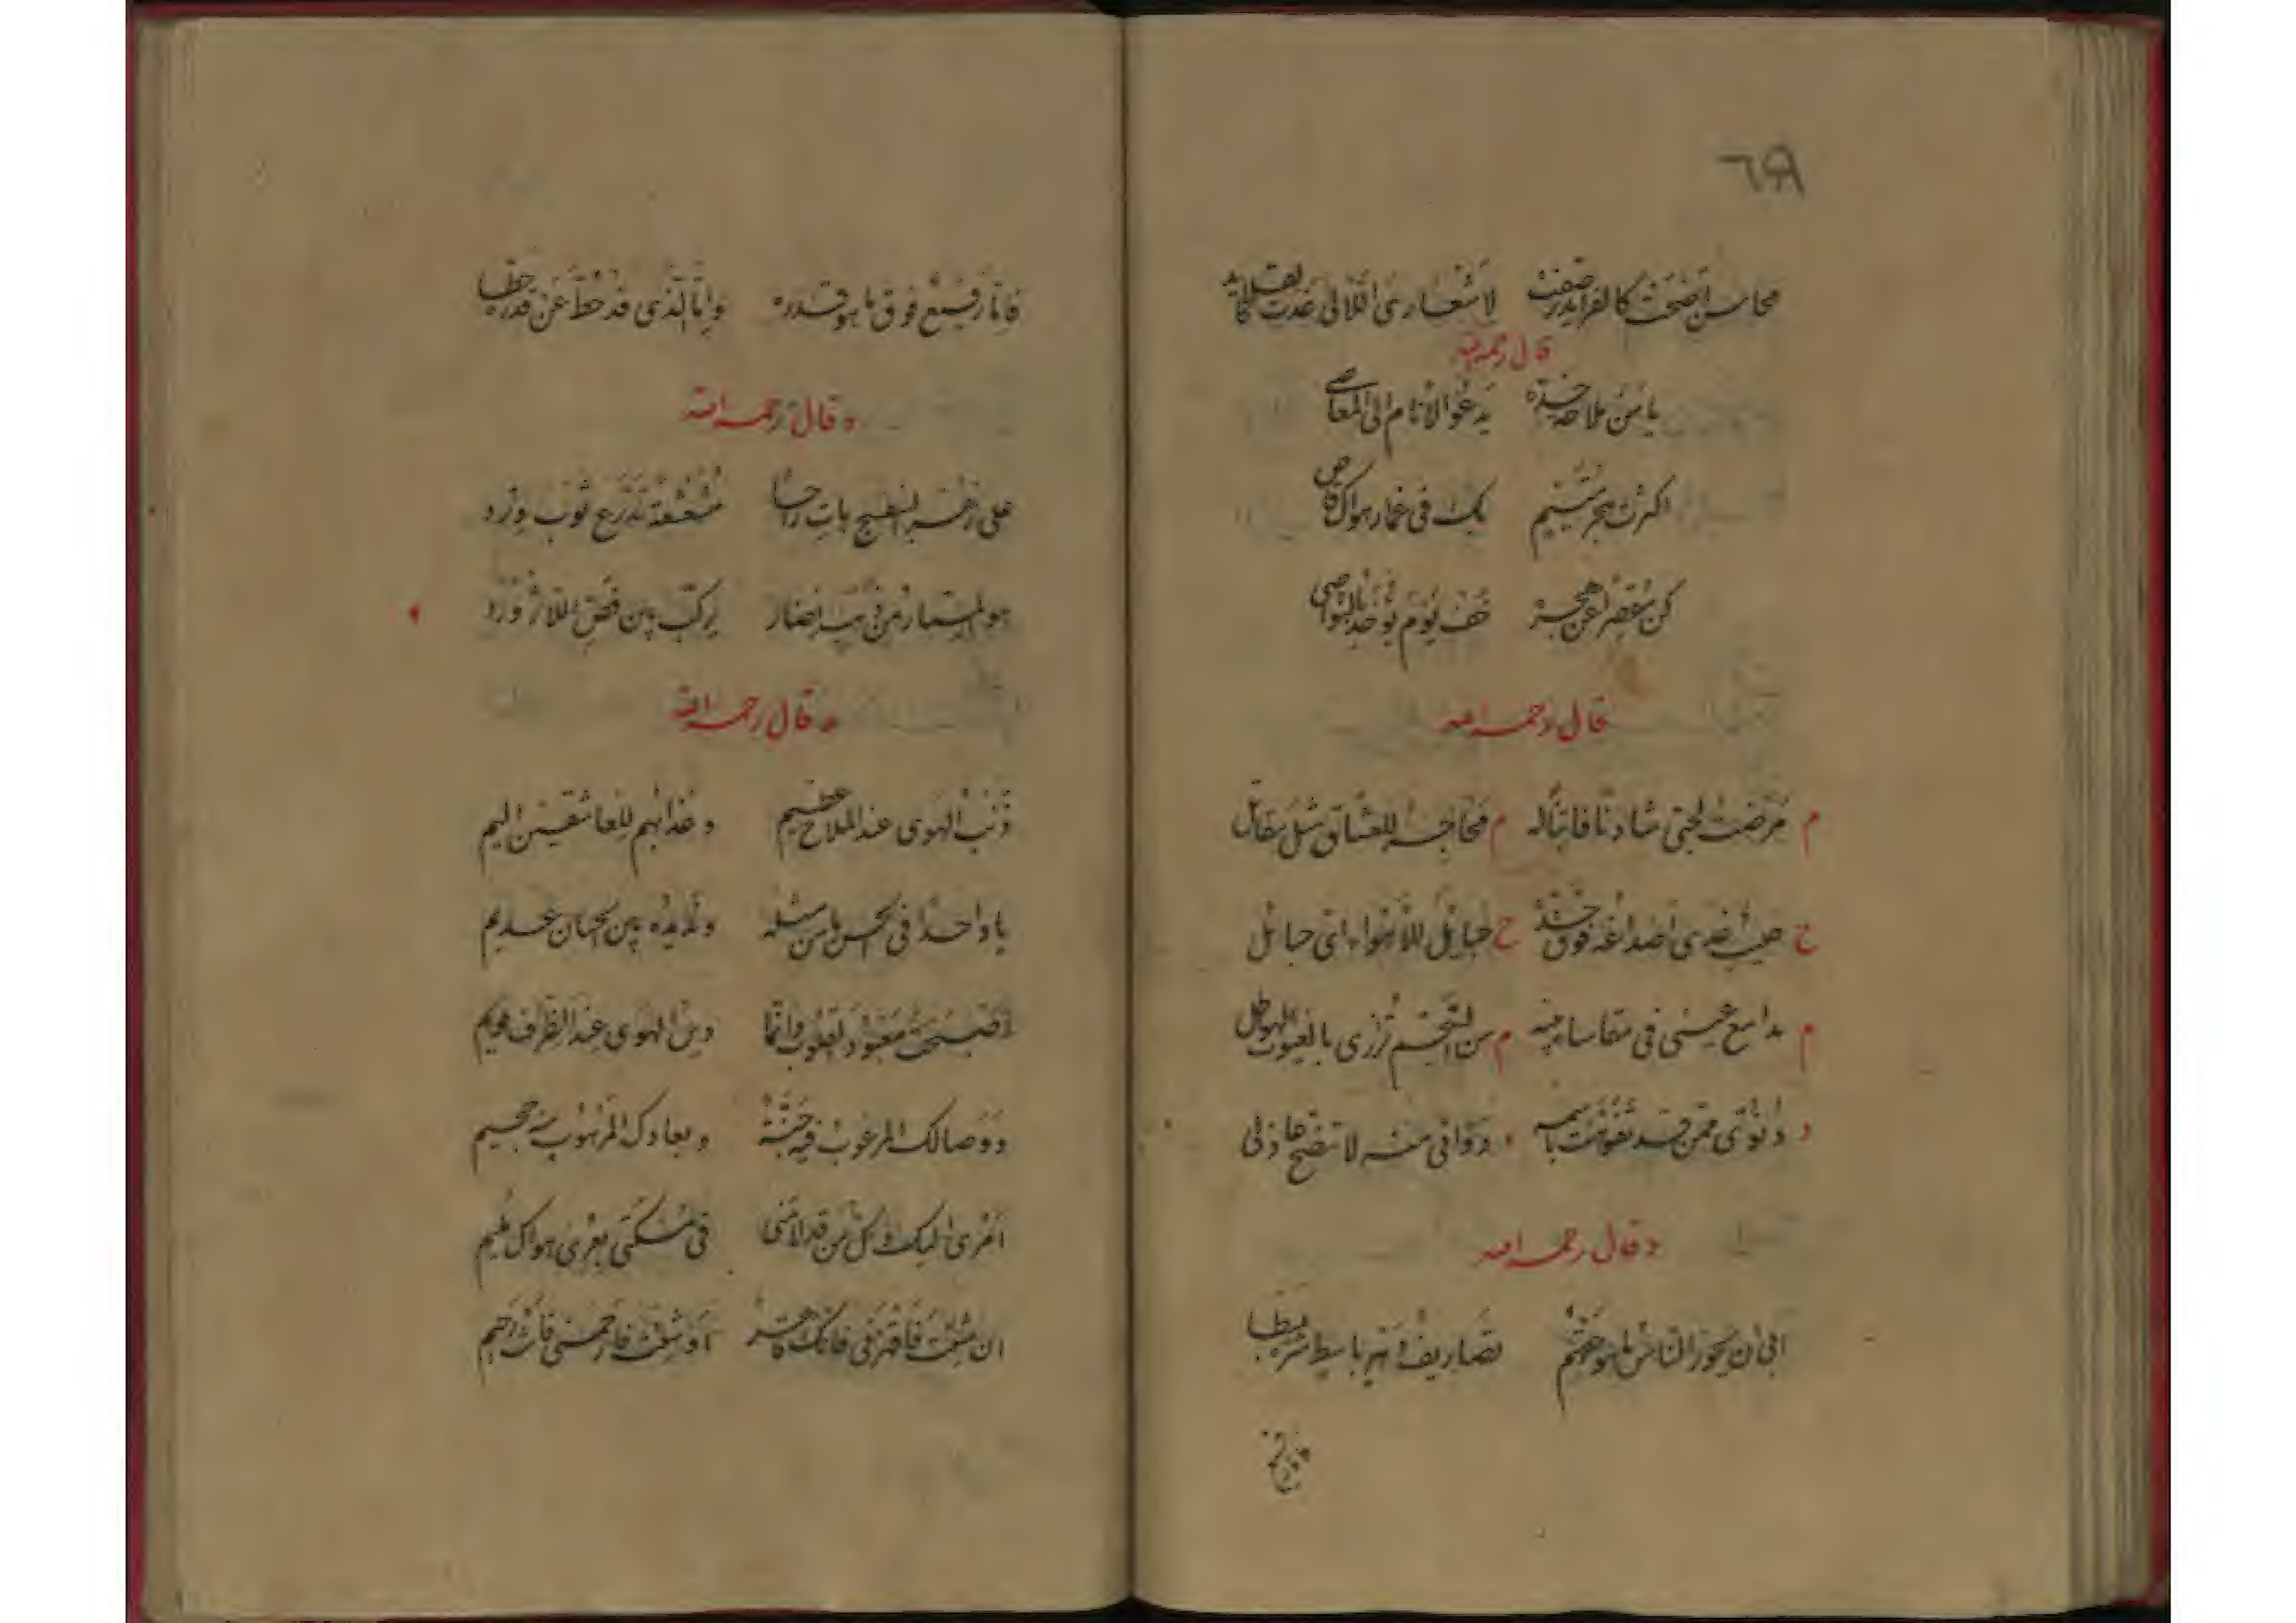 ٦٩
محاسن اضحت كالفرايد رصفت لاشعاري اللآلي غدت
قال رحمه الله
يا من ملاحة خده يدعو الانام الى المعاصي
اكثرت هجر متيم بك في غمار هواك قاصي
كن مقصرا عن هجره خف يوم يؤخذ بالنواصي
قال رحمه الله
م مرضت لحبي شادنا فاتنا له م محاجر للعشاق مثل مقاتل
ح حبيب غدى اصداغه فوق خده ح حبايل للاهواء اي حبائل
م مدامع عيني في مقاساة بينه م من السجم تزري بالغيوث الهواطل
د دنوي ممن قد تفوهت باسمه د دوائي منه لا تصح عاذلي
وقال رحمه الله
ابى ان يحوز الناس ما هو حقهم تصاريف دهر باسط شره بطا
فاما رفيع فوق ما هو قدره واما الذي قد حط عن قدره حطا
وقال رحمه الله
على زهر البنفسج بات راحا مشعشعة تدرع ثوب ورد
هو المسمار من ذهب نضار يركب بين فص اللازورد
وقال رحمه الله
ذنب الهوى عند الملاح عظيم وعذابهم للعاشقين اليم
يا واحدا في الحسن ما من مثله ونديده بين الحسان عديم
اصبحت معبود القلوب وانما دين الهوى عند الظراف قويم
ووصالك المرغوب فيه جنة وبعادك المرهوب منه جحيم
امري اليك وكل من قد لامني في مسكتي بعرى هواك مليم
ان شئت فاقهرني فانك قاهر او شئت فارحمني فانت رحيم